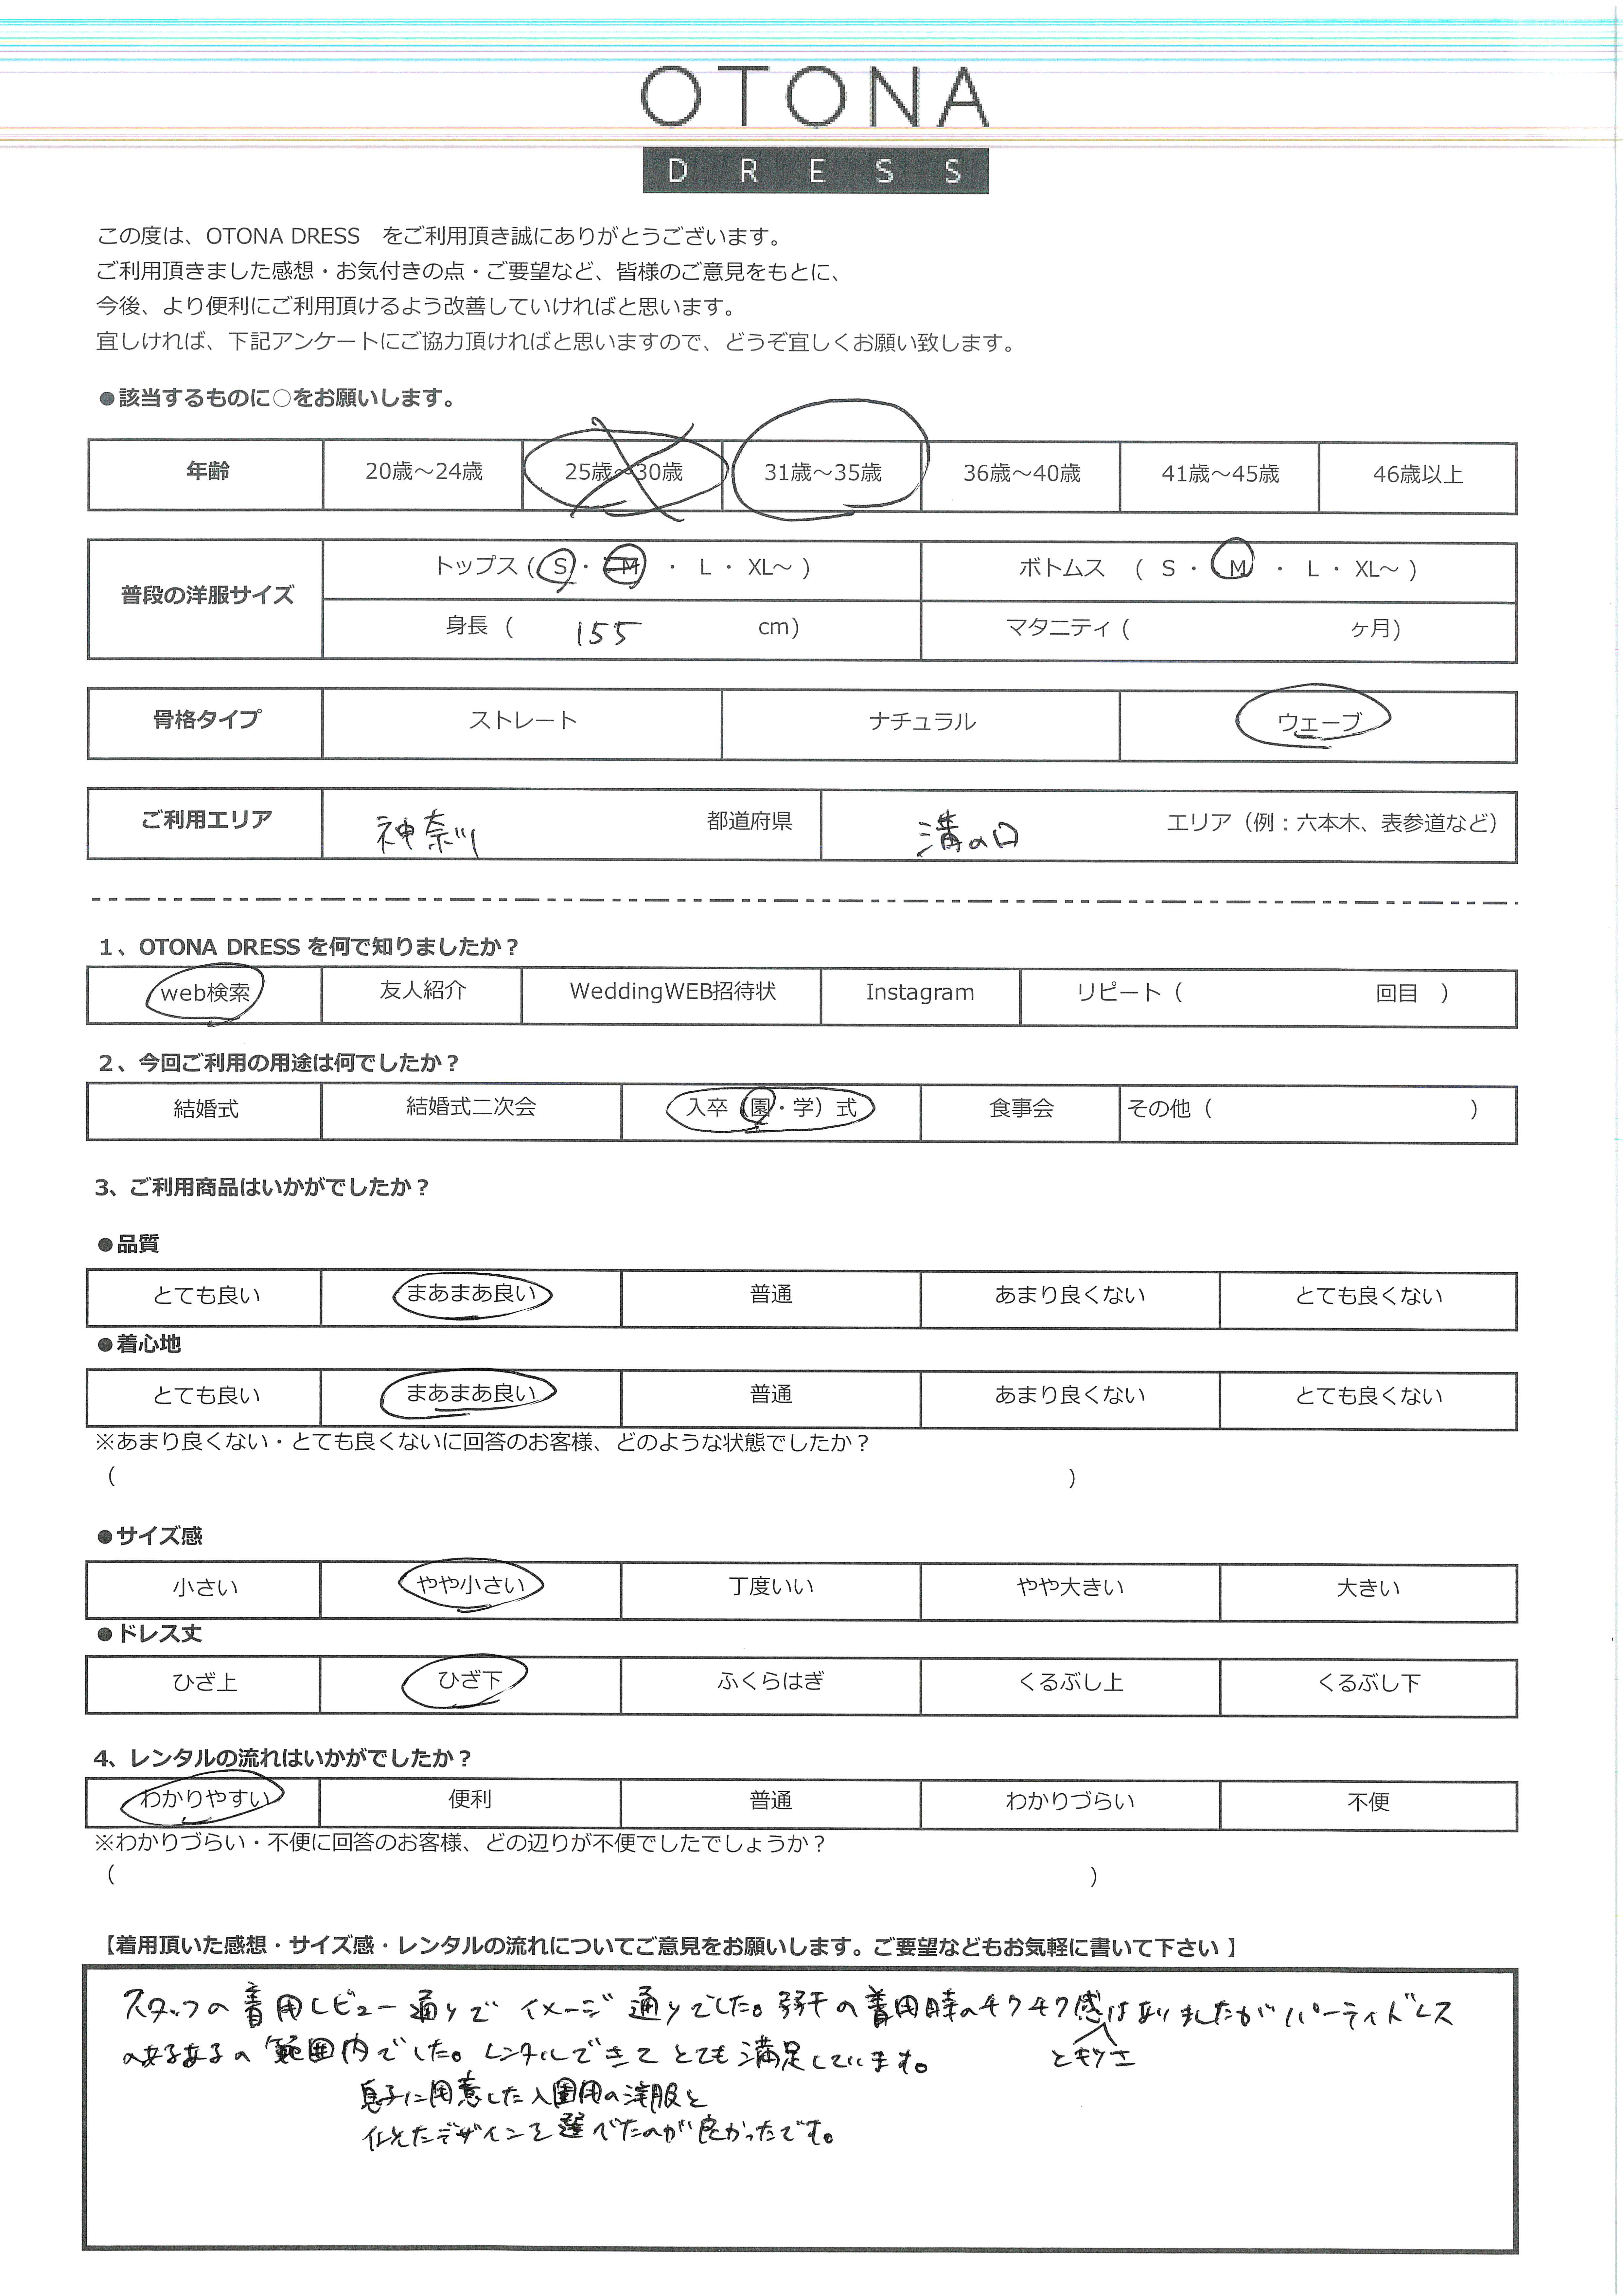 OTONA
DRESS
この度は、OTONA DRESS　をご利用頂き誠にありがとうございます。
ご利用頂きました感想・お気付きの点・ご要望など、皆様のご意見をもとに、
今後、より便利にご利用頂けるよう改善していければと思います。
宜しければ、下記アンケートにご協力頂ければと思いますので、どうぞ宜しくお願い致します。
●該当するものに○をお願いします。
年齢 20歳～24歳 25歳～30歳 31歳～35歳 36歳～40歳 41歳～45歳 46歳以上
普段の洋服サイズ
トップス ( S ・ M ・ L ・ XL～ ) ボトムス ( S ・ M ・ L ・ XL～ )
身長 ( 155 cm) マタニティ ( ヶ月)
骨格タイプ ストレート ナチュラル ウェーブ
ご利用エリア 神奈川 都道府県 溝の口 エリア（例：六本木、表参道など）
1、OTONA DRESS を何で知りましたか？
web検索 友人紹介 WeddingWEB招待状 Instagram リピート（ 回目 ）
2、今回ご利用の用途は何でしたか？
結婚式 結婚式二次会 入卒（園・学）式 食事会 その他（ ）
3、ご利用商品はいかがでしたか？
●品質
とても良い まあまあ良い 普通 あまり良くない とても良くない
●着心地
とても良い まあまあ良い 普通 あまり良くない とても良くない
※あまり良くない・とても良くないに回答のお客様、どのような状態でしたか？
（ ）
●サイズ感
小さい やや小さい 丁度いい やや大きい 大きい
●ドレス丈
ひざ上 ひざ下 ふくらはぎ くるぶし上 くるぶし下
4、レンタルの流れはいかがでしたか？
わかりやすい 便利 普通 わかりづらい 不便
※わかりづらい・不便に回答のお客様、どの辺りが不便でしたでしょうか？
（ ）
【着用頂いた感想・サイズ感・レンタルの流れについてご意見をお願いします。ご要望などもお気軽に書いて下さい 】
スタッフの着用レビュー通りでイメージ通りでした。若干の着用時のチクチク感はありましたがパーティドレス
のあるあるの範囲内でした。レンタルできてとても満足しています。
息子に用意した入園用の洋服と
似たデザインを選べたのが良かったです。